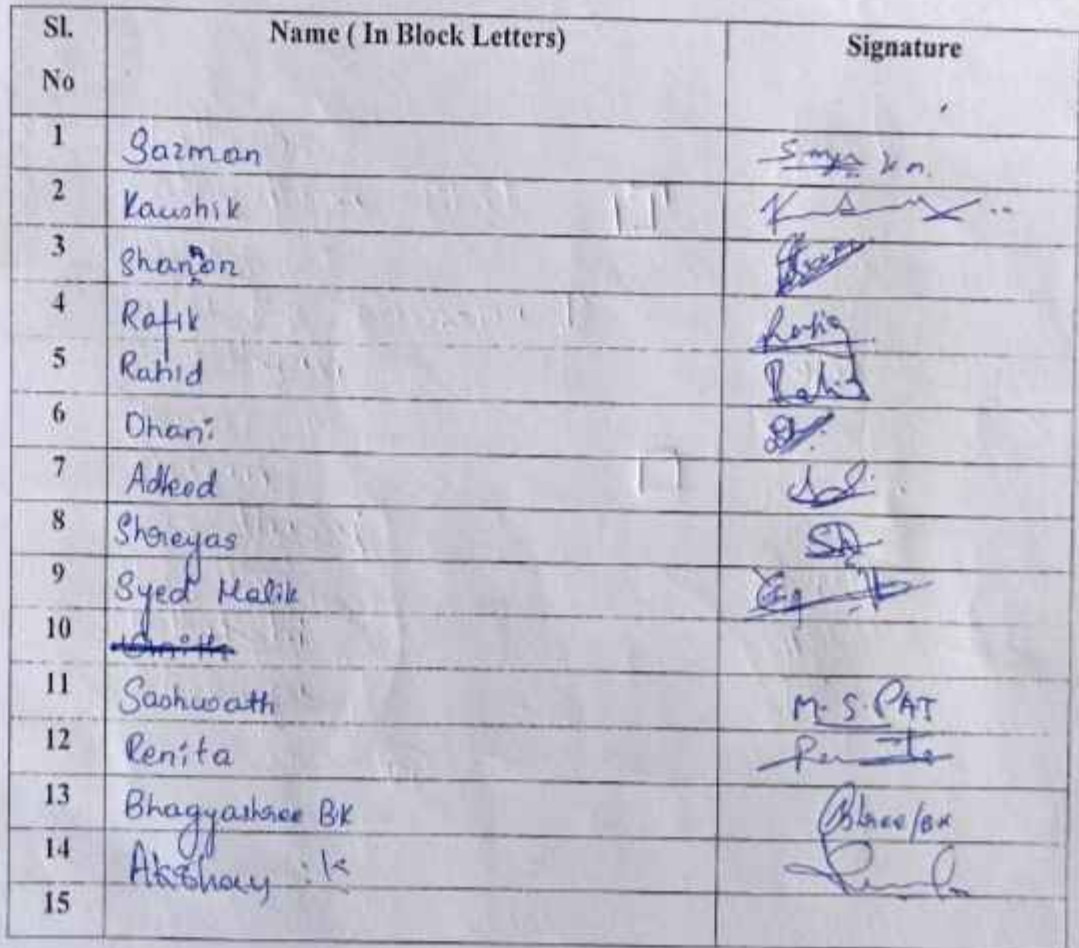 Sl. No Name ( In Block Letters) Signature
1 Sazman
2 Kaushik
3 Shanon
4 Rafik Rafiq
5 Rahid Rahid
6 Dhani
7 Adkod
8 Shreyas
9 Syed Malik
10
11 Sashwath M. S. PAT
12 Renita
13 Bhagyashree BK Bhree/BK
14 Akshay .K
15